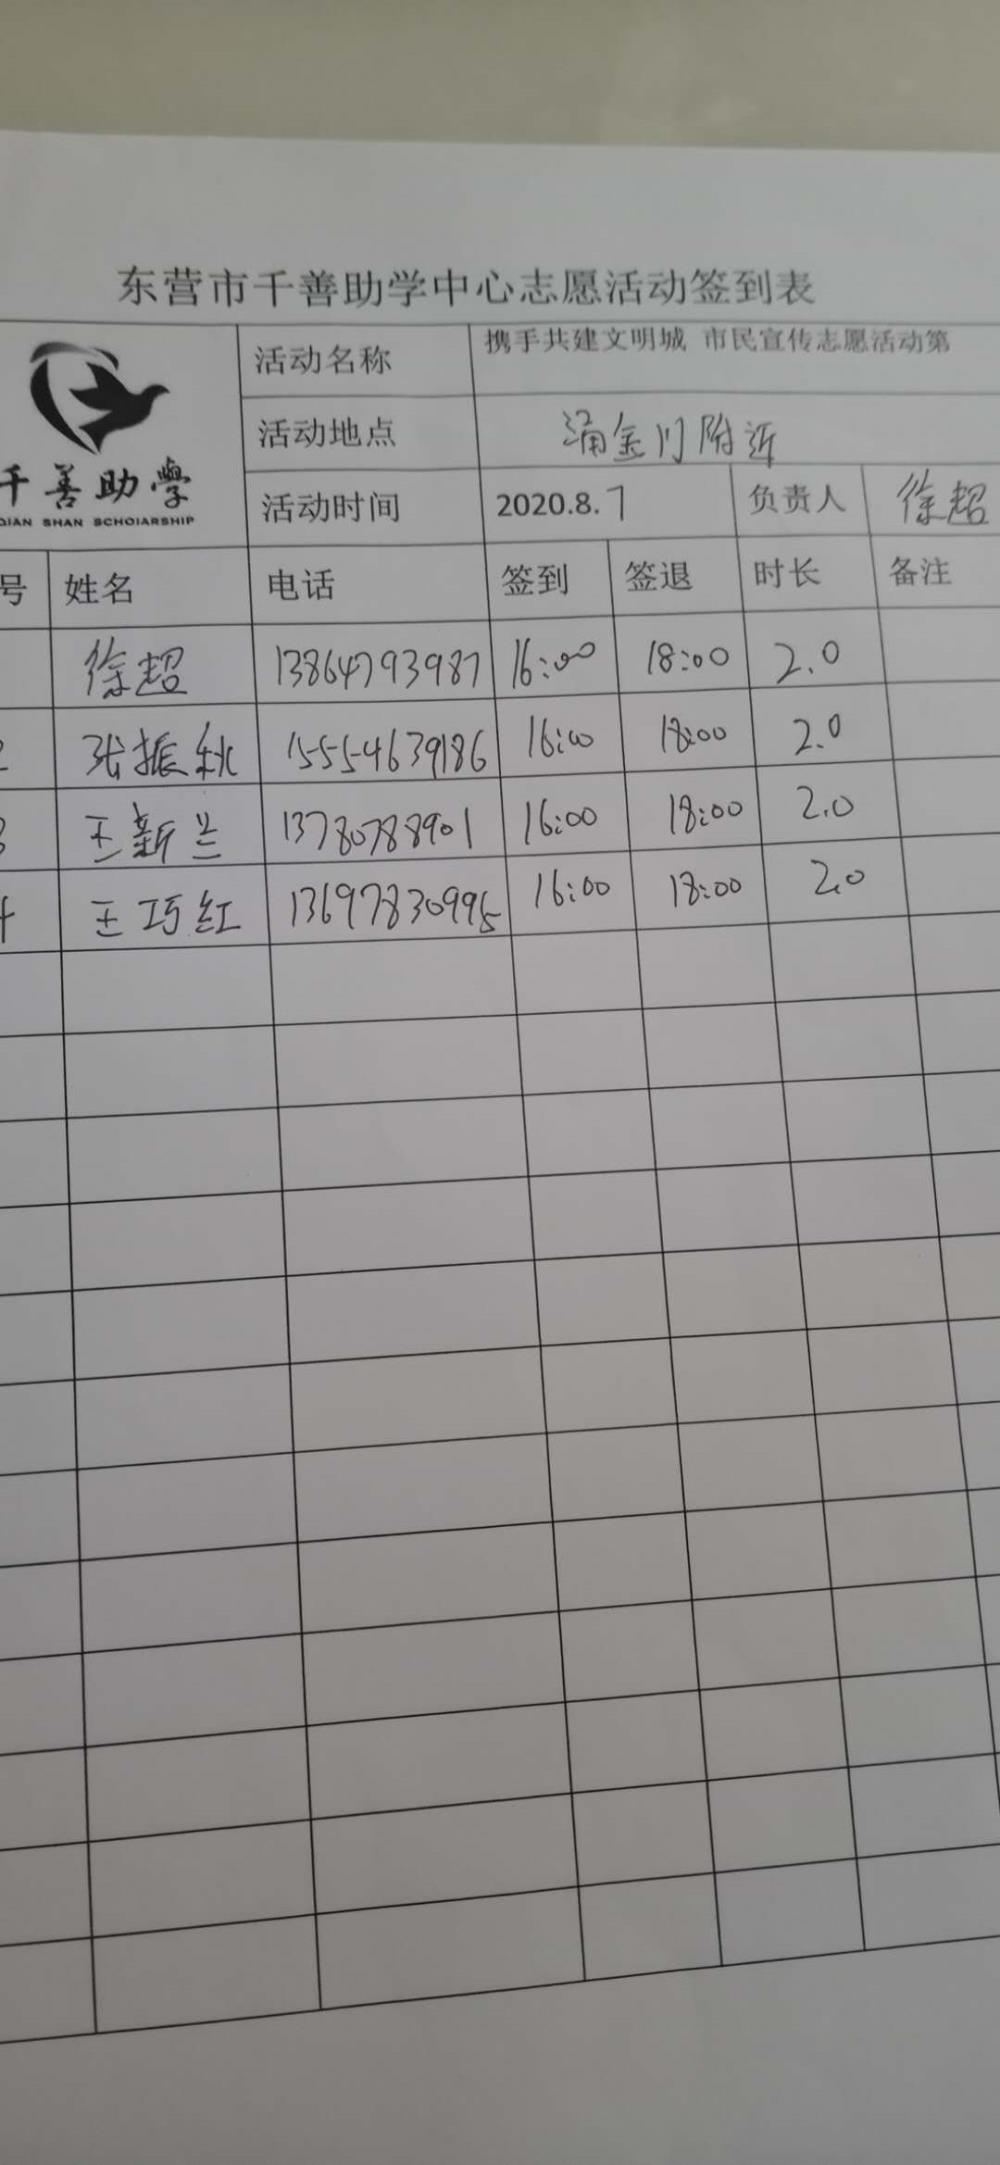 东营市千善助学中心志愿活动签到表
千善助學
QIAN SHAN SCHOlARSHIP
活动名称 携手共建文明城 市民宣传志愿活动第
活动地点 涌金门附近
活动时间 2020.8.7 负责人 徐超
号 姓名 电话 签到 签退 时长 备注
徐超 13864793987 16:00 18:00 2.0
2 张振秋 15554639186 16:00 18:00 2.0
3 王新兰 13780788901 16:00 18:00 2.0
4 王巧红 13697830995 16:00 18:00 2.0